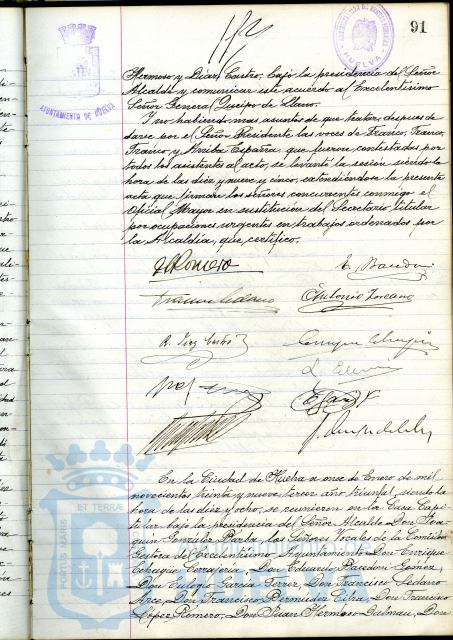 91
AYUNTAMIENTO DE HUELVA
HUELVA
Hermoso y Díaz Castro, bajo la presidencia del Señor
Alcalde y comunicar este acuerdo al Excelentísimo
Señor General Queipo de Llano.
Y no habiendo mas asuntos de que tratar, despues de
darse por el Señor Presidente las voces de Franco, Franco,
Franco, y Arriba España que fueron contestadas por
todos los asistentes al acto, se levantó la sesión siendo la
hora de las diez y nueve y cinco, extendiéndose la presente
acta que firman los señores concurrentes conmigo el
Oficial Mayor en sustitución del Secretario titular
por ocupaciones urgentes en trabajos ordenados por
la Alcaldía, que certifico.
Romero
Antonio Toscano
En la Ciudad de Huelva a once de Enero de mil
novecientos treinta y nueve tercer año triunfal, siendo la
hora de las diez y ocho, se reunieron en la Casa Capi-
tular bajo la presidencia del Señor Alcalde Don Joa-
quin González Barba, los Señores Vocales de la Comisión
Gestora del Excelentísimo Ayuntamiento Don Enrique
Don Eduardo Gómez,
Don Eulogio García Don Francisco Sedano
Arce, Don Francisco Bermudez Don Francisco
López Romero, Don Juan Hermoso Don
PORTUS MARIS ET TERRAE